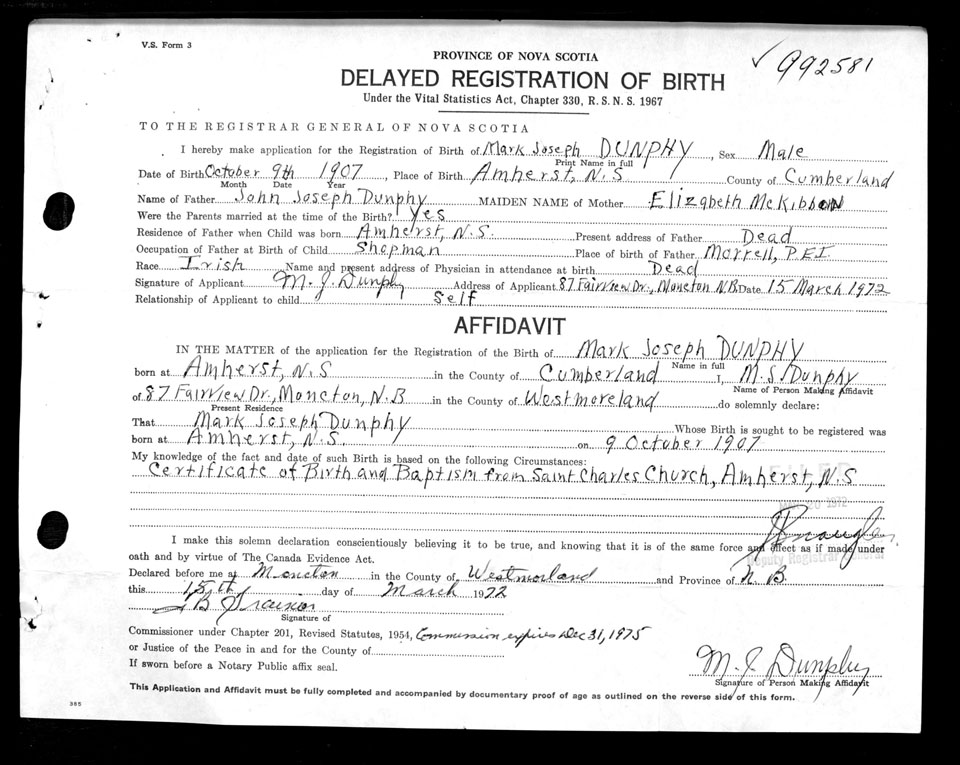 V.S. Form 3
992581
PROVINCE OF NOVA SCOTIA
DELAYED REGISTRATION OF BIRTH
Under the Vital Statistics Act, Chapter 330, R. S. N. S. 1967
TO THE REGISTRAR GENERAL OF NOVA SCOTIA
I hereby make application for the Registration of Birth of Mark Joseph DUNPHY, Sex Male
Print Name in full
Date of Birth October 9th 1907, Place of Birth Amherst, N.S County of Cumberland
Month Date Year
Name of Father John Joseph Dunphy MAIDEN NAME of Mother Elizabeth McKibbon
Were the Parents married at the time of the Birth? Yes
Residence of Father when Child was born Amherst, N.S. Present address of Father Dead
Occupation of Father at Birth of Child Shopman Place of birth of Father Morrell, P.E.I.
Race Irish Name and present address of Physician in attendance at birth Dead
Signature of Applicant M. J. Dunphy Address of Applicant 87 Fairview Dr., Moncton N.B Date 15 March 1972
Relationship of Applicant to child Self
AFFIDAVIT
IN THE MATTER of the application for the Registration of the Birth of Mark Joseph DUNPHY
Name in full
born at Amherst, N.S in the County of Cumberland I, M.J. Dunphy
Name of Person Making Affidavit
of 87 Fairview Dr., Moncton, N.B in the County of Westmoreland do solemnly declare:
Present Residence
That Mark Joseph Dunphy Whose Birth is sought to be registered was
born at Amherst, N.S. on 9 October 1907
My knowledge of the fact and date of such Birth is based on the following Circumstances:
Certificate of Birth and Baptism from Saint Charles Church, Amherst, N.S
1972
I make this solemn declaration conscientiously believing it to be true, and knowing that it is of the same force and effect as if made under
oath and by virtue of The Canada Evidence Act.
Deputy Registrar General
Declared before me at Moncton in the County of Westmorland and Province of N. B.
this 15th day of March 1972
Signature of
Commissioner under Chapter 201, Revised Statutes, 1954, Commission expires Dec 31, 1975
or Justice of the Peace in and for the County of
If sworn before a Notary Public affix seal.
M. J. Dunphy
Signature of Person Making Affidavit
This Application and Affidavit must be fully completed and accompanied by documentary proof of age as outlined on the reverse side of this form.
385